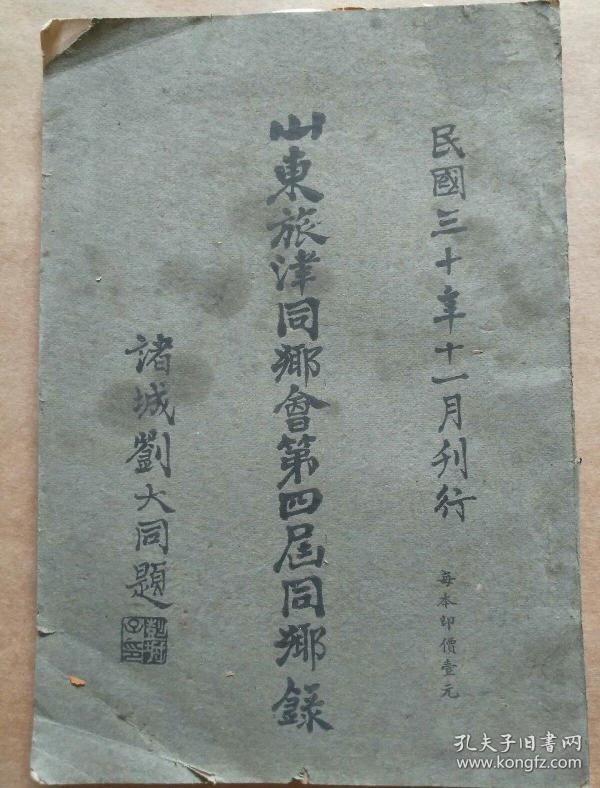 民國三十年十一月刋行
每本印價壹元
山東旅津同鄉會第四屆同鄉錄
諸城劉大同題
孔夫子旧书网
www.kongfz.com